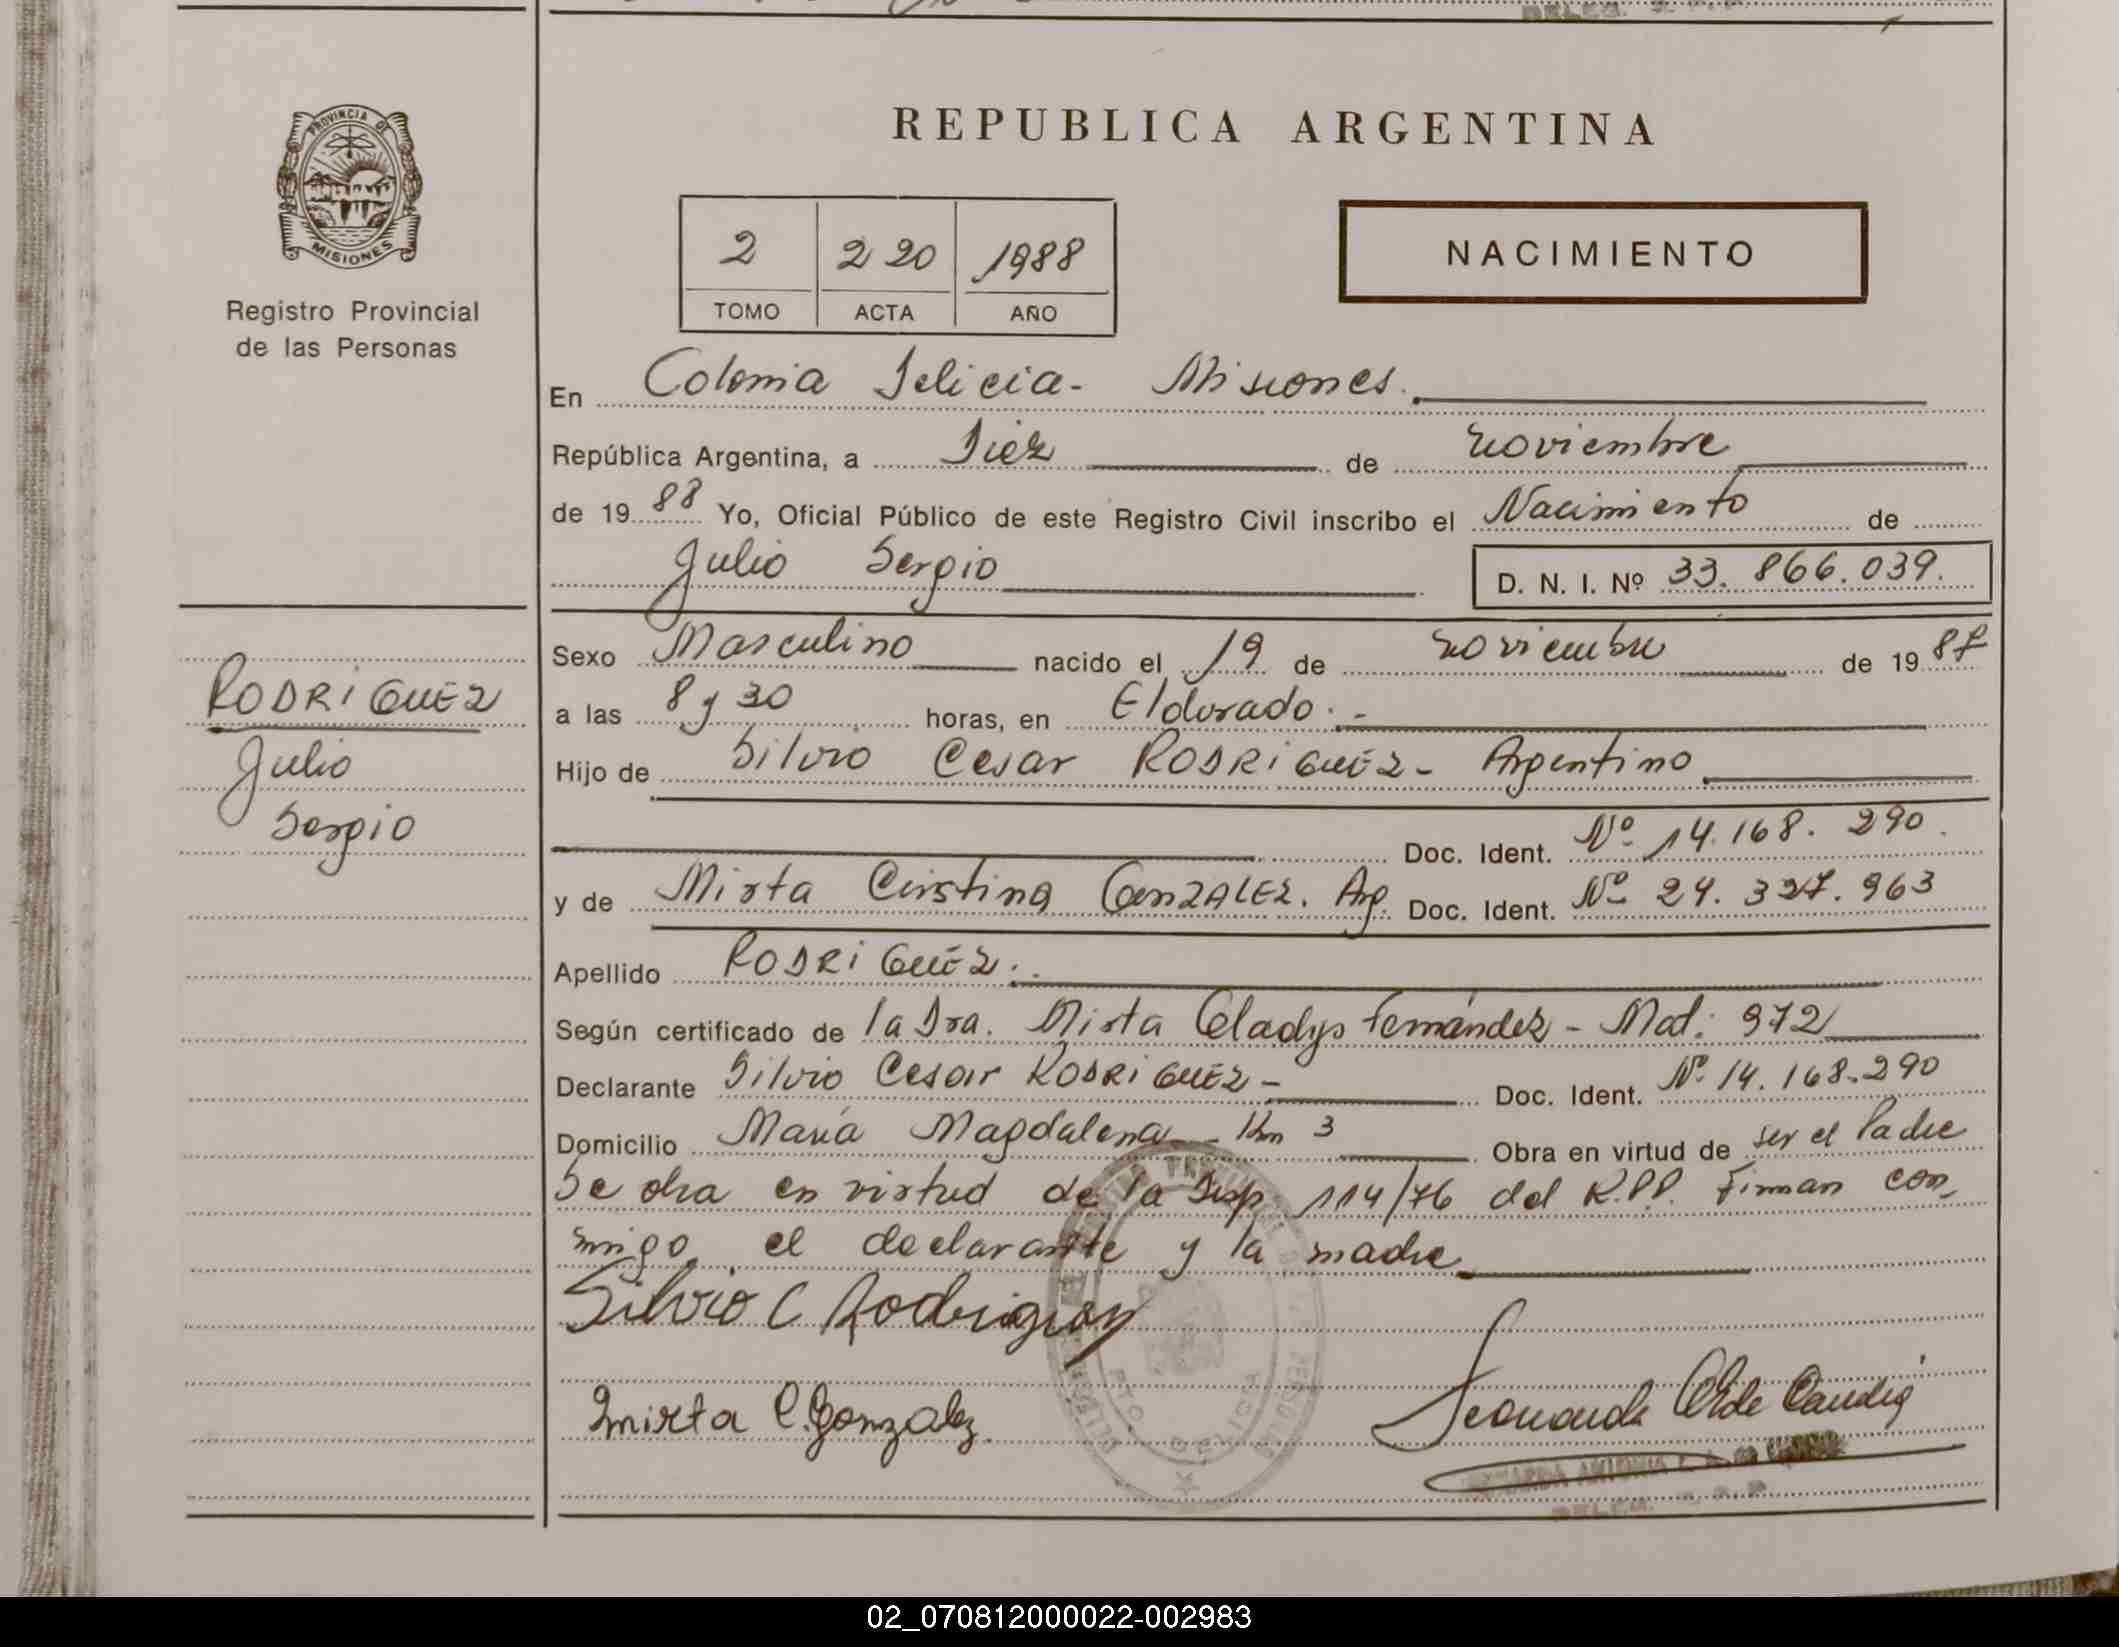 REPUBLICA ARGENTINA
PROVINCIA DE
MISIONES
Registro Provincial
de las Personas
2 220 1988
TOMO ACTA AÑO
NACIMIENTO
En Colonia Delicia- Misiones.
República Argentina, a Diez de noviembre
de 19 88 Yo, Oficial Público de este Registro Civil inscribo el Nacimiento de
Julio Sergio D. N. I. Nº 33.866.039.
Sexo Masculino nacido el 19 de noviembre de 19 87
a las 8 y 30 horas, en Eldorado.-
Hijo de Silvio Cesar RODRIGUEZ- Argentino
Doc. Ident. Nº 14.168.290.
y de Mirta Cristina GONZALEZ. Arg. Doc. Ident. Nº 24.327.963
Apellido RODRIGUEZ.
Según certificado de la Dra. Mirta Gladys Fernández - Mat: 972
Declarante Silvio Cesar RODRIGUEZ- Doc. Ident. Nº 14.168.290
Domicilio María Magdalena - Km 3 Obra en virtud de ser el Padre
Se obra en virtud de la Disp 114/76 del R.P.P. Firman con
migo el declarante y la madre
Silvio C Rodriguez
Mirta C. Gonzalez.
RODRIGUEZ
Julio
Sergio
PTO. DELICIA
DELEG.
02_070812000022-002983